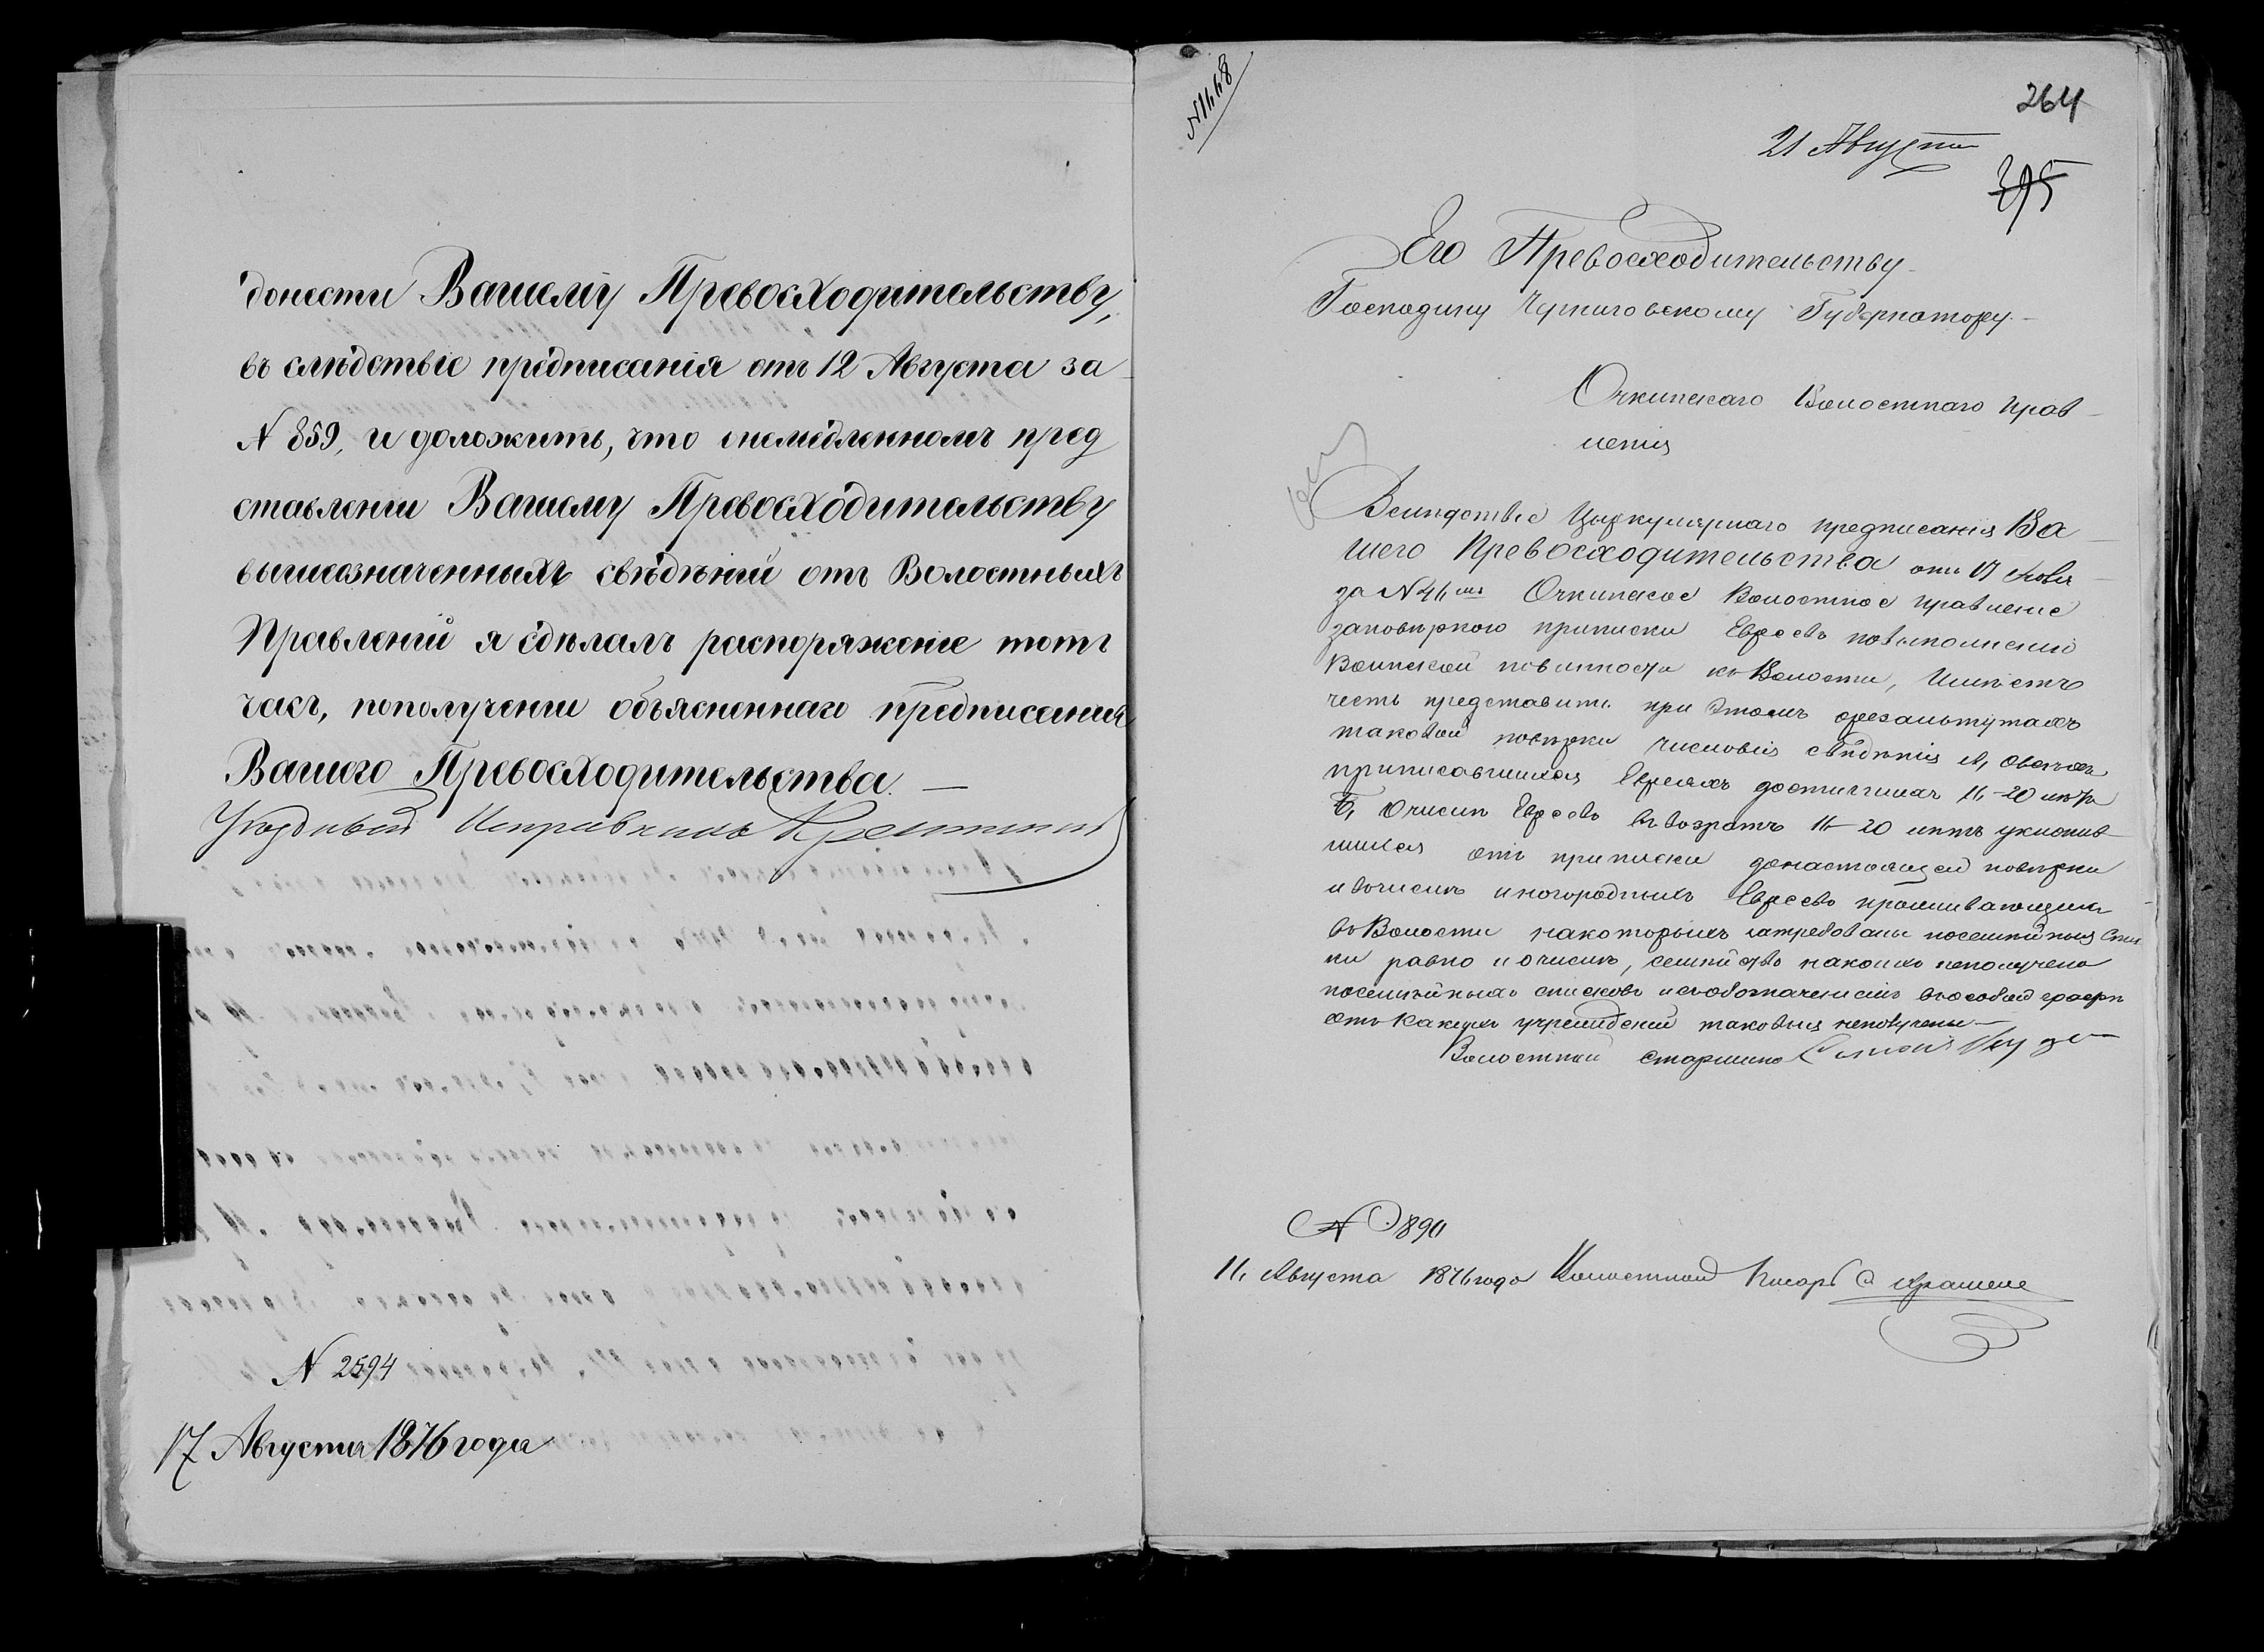 донести Вашему Превосходительству,
въ слѣдствіе предписанія отъ 12 Августа за
N 859, и доложить, что онемедленномъ пред
ставленіи Вашему Превосходительству
вышеозначенныхъ свѣдѣній отъ Волостныхъ
Правленій я сдѣлалъ распоряженіе тотъ
часъ, пополученіи объясненнаго предписания
Вашего Превосходительства. —
Уѣздный Исправникъ
N 2594
17 Августа 1876 года
264
21 Августа
395
Его Превосходительству
Господину Черниговскому Губернатору. —
Очкинскаго Волостнаго прав
ления
Вслидствіе Циркулярнаго предписанія Ва
шего Превосходительства отъ 17
за N Очкинское Волостное правление
заповѣркою приписки Евреевъ повыполнению
Воинской повинности къ Волости, Имѣетъ
честь представить при Этомъ орезальтутахъ
таковой повѣрки числовія свѣдѣнія А,
приписавшихся Евреяхъ достигшихъ 11-20
Б, Очислѣ Евреевъ въ возратѣ 11-20 лѣтъ уклонив
шихся отъ приписки донастоящей повѣрки
и вочислѣ иногородныхъ Евреевъ проживающихъ
въ Волости накоторыхъ затребованы посемѣйныя Спис
ки равно и Очислѣ, семѣйствъ накоихъ неполучено
посемѣйныхъ списковъ исъобозначеніемъ въособой графѣ
отъ Какихъ учрежденій таковыя неполучены —
Волостной старшина
N 890
11, Августа 1876 года Волостной Писарь